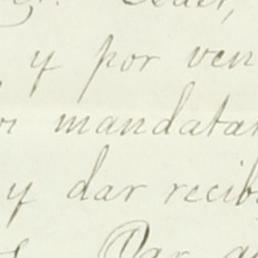 y por ven
mandatar
y dar recib
Par